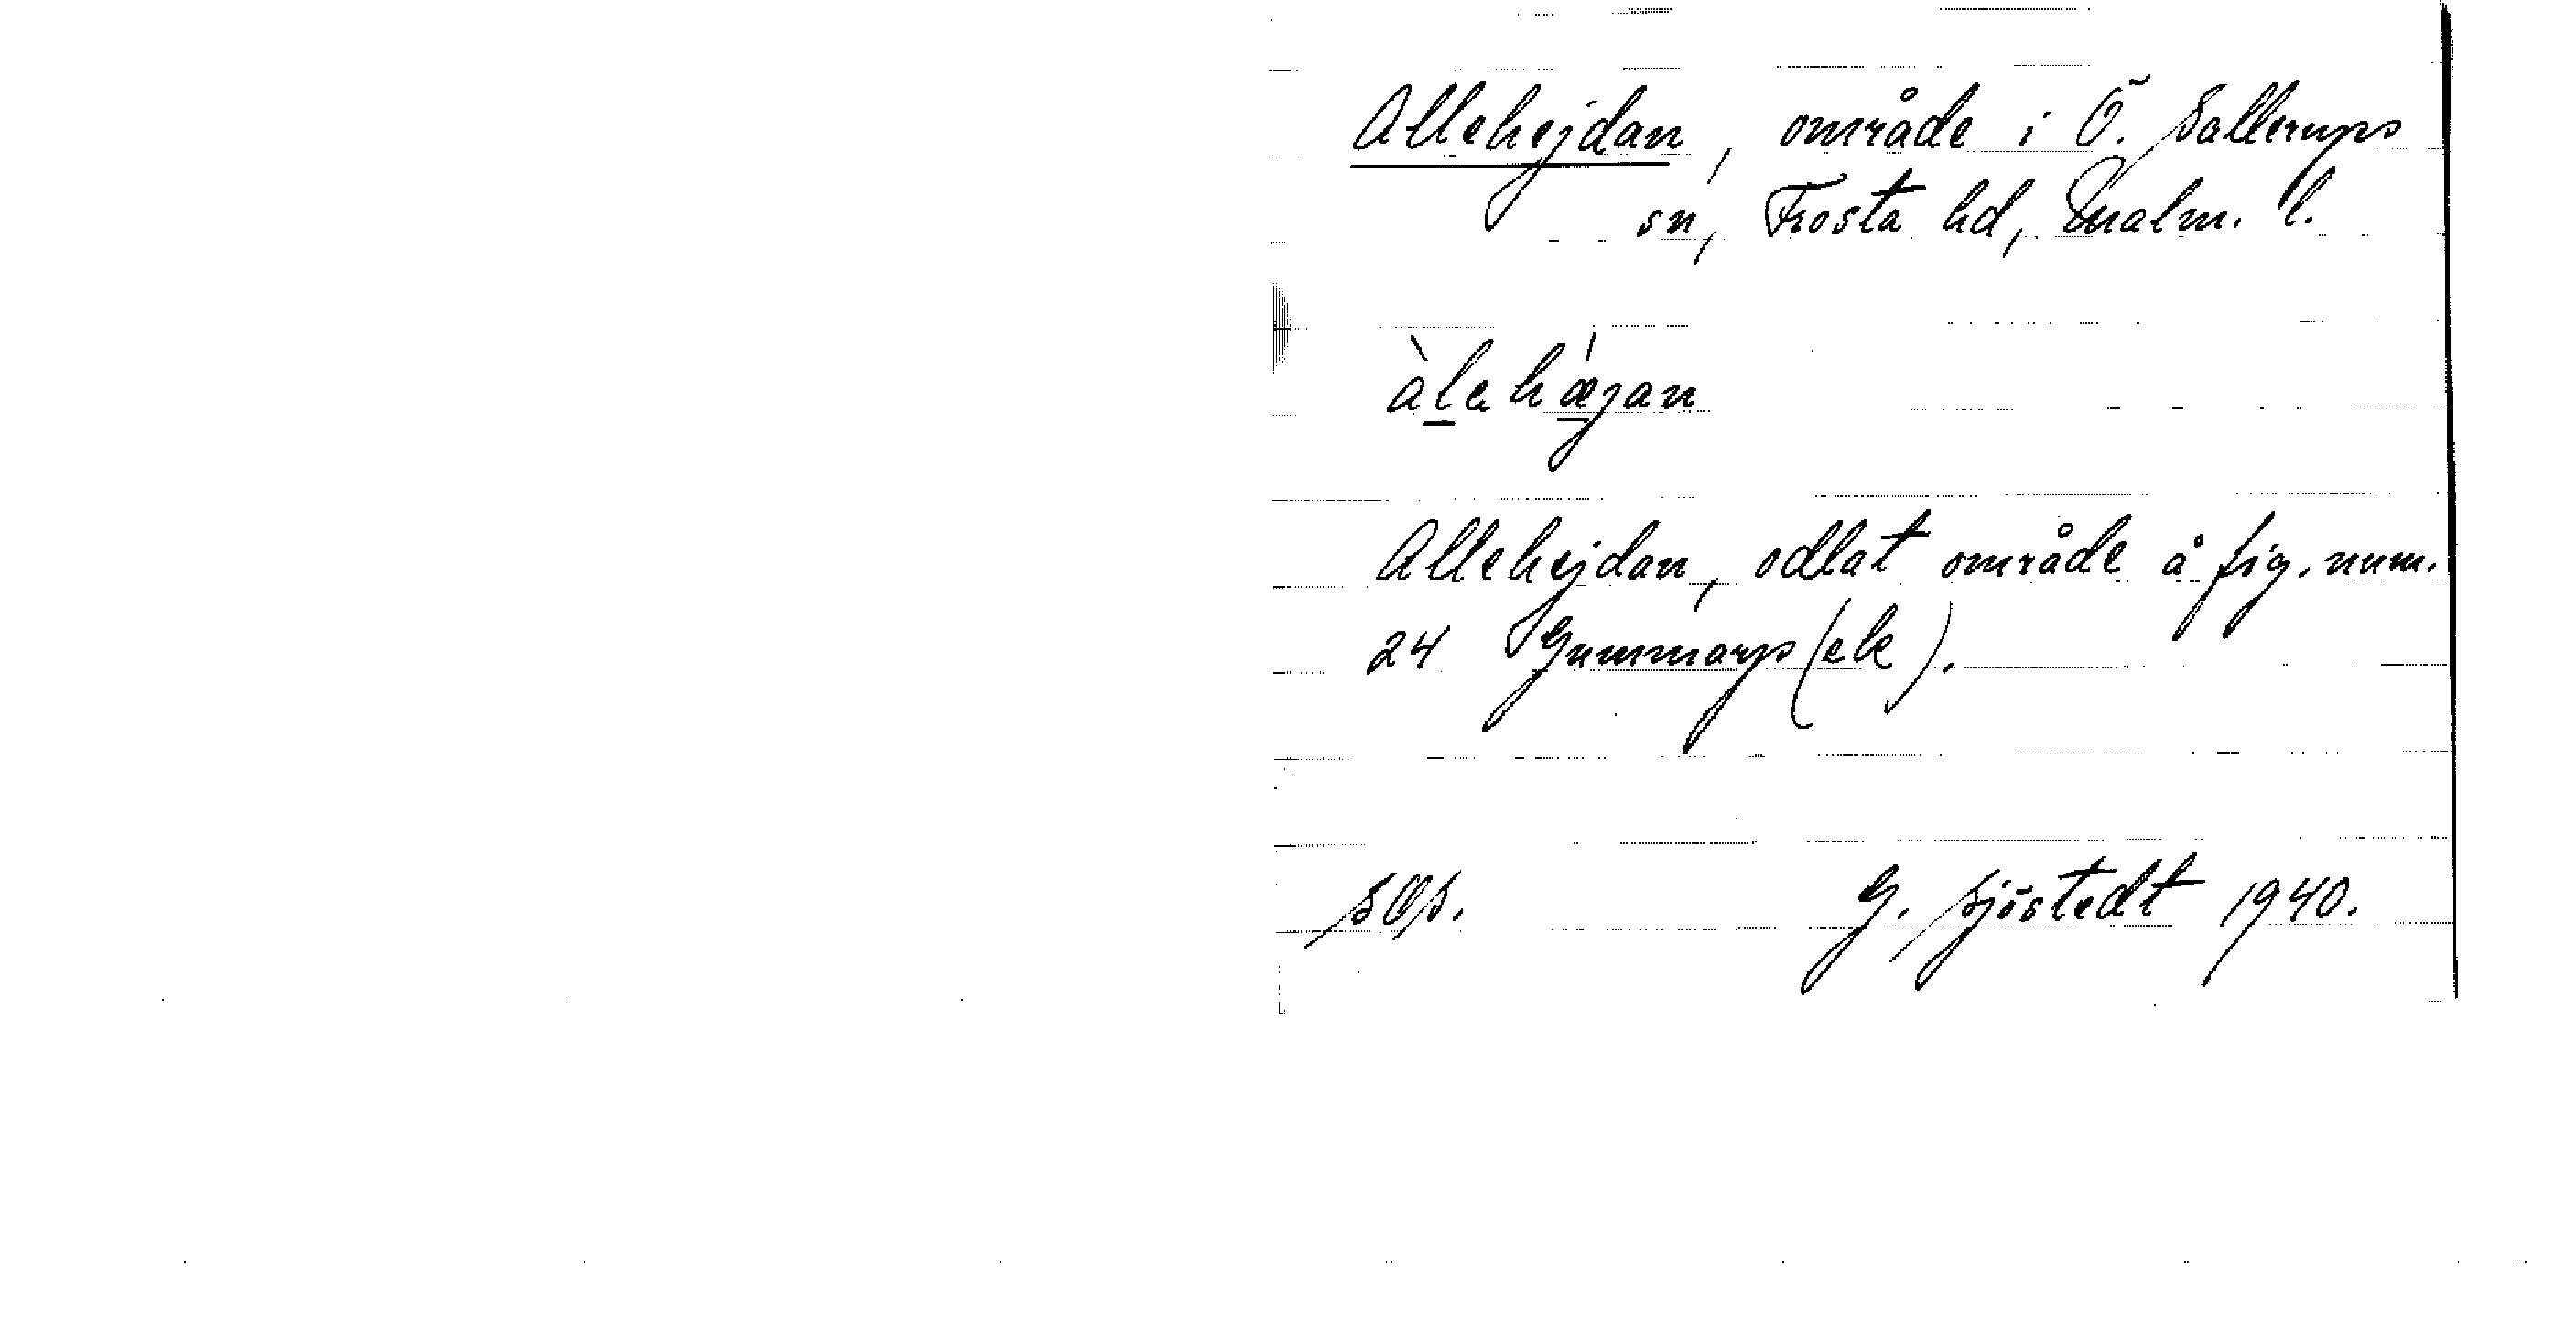 Allehejdan, område i Ö. Sallerups
sn, Frosta hd, Malm. l.
àlehæjan
Allehejdan, odlat område å fig. num.
24 Gummarp (ek).
SOS. G. Sjöstedt 1940.